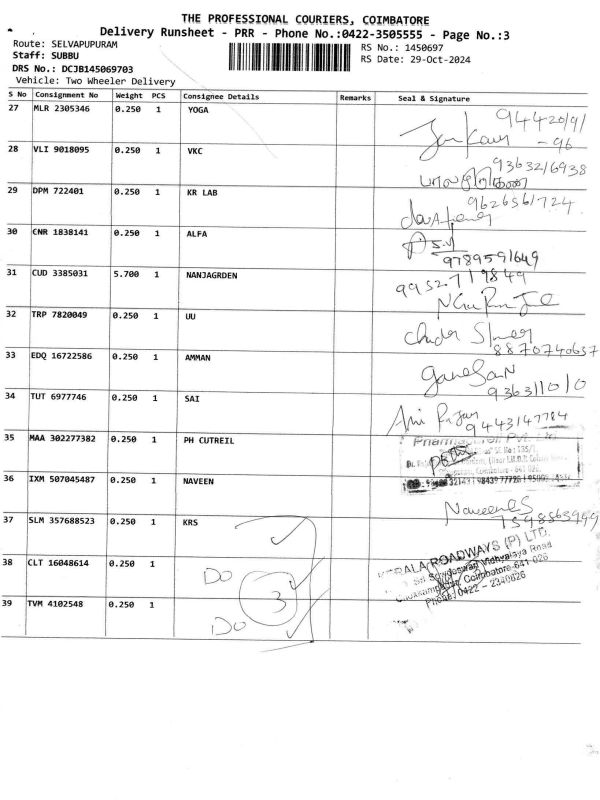 THE PROFESSIONAL COURIERS, COIMBATORE
Delivery Runsheet - PRR - Phone No.:0422-3505555 - Page No.:3
Route: SELVAPUPURAM
RS No.: 1450697
Staff: SUBBU
RS Date: 29-Oct-2024
DRS No.: DCJB145069703
Vehicle: Two Wheeler Delivery
S No Consignment No Weight PCS Consignee Details Remarks Seal & Signature
27 MLR 2305346 0.250 1 YOGA
28 VLI 9018095 0.250 1 VKC
9363216938
29 DPM 722401 0.250 1 KR LAB
9626561724
30 CNR 1838141 0.250 1 ALFA
9789591649
31 CUD 3385031 5.700 1 NANJAGRDEN
9952719849
32 TRP 7820049 0.250 1 UU
8870740637
33 EDQ 16722586 0.250 1 AMMAN
Ganesan
9363110101
34 TUT 6977746 0.250 1 SAI
9443147784
35 MAA 302277382 0.250 1 PH CUTREIL
36 IXM 507045487 0.250 1 NAVEEN
Naveen
37 SLM 357688523 0.250 1 KRS
KERALA ROADWAYS (P) LTD.
Vidhyalaya Road
Coimbatore-641 026
Phone: 0422 - 2340826
38 CLT 16048614 0.250 1
Do
3
39 TVM 4102548 0.250 1
Do